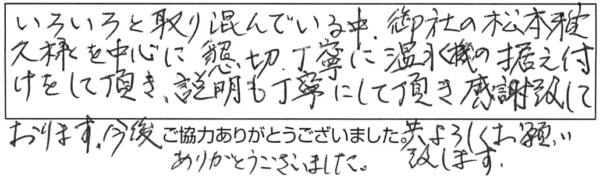 いろいろと取り混んでいる中、御社の松本雅
久様を中心に懇切、丁寧に温水機の据え付
けをして頂き、説明も丁寧にして頂き感謝致して
おります。今後 ご協力ありがとうございました。共よろしくお願い
ありがとうございました。 致します。